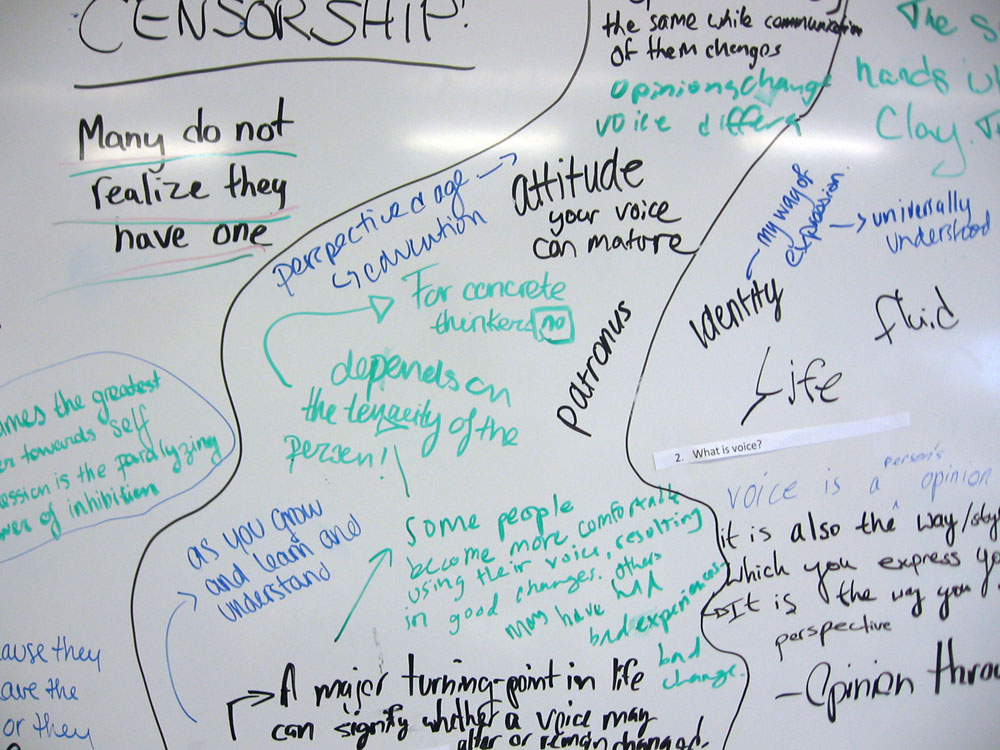 CENSORSHIP!
Many do not
realize they
have one
ames the greatest
er towards self
ession is the paralyzing
wer of inhibition
ause they
ave the
or they
the same while communication
of them changes
opinions change
voice differs
perspective
age →
attitude
your voice
can mature
For concrete
thinkers no
depends on
the tenacity of the
Person!
Patronus
as you grow
and learn and
understand
Some people
become more comfortable
using their voice, resulting
in good changes. Others
may have had
bad experiences-
bad
change.
A major turning-point in life
can signify whether a voice may
alter or remain changed.
The S
hands w
Clay. T
my way of
expression.
→ universally
understood
Identity
fluid
Life
2. What is voice?
person's
voice is a ^ opinion
it is also the way/sty
which you express yo
It is the way you
perspective
- Opinion throu